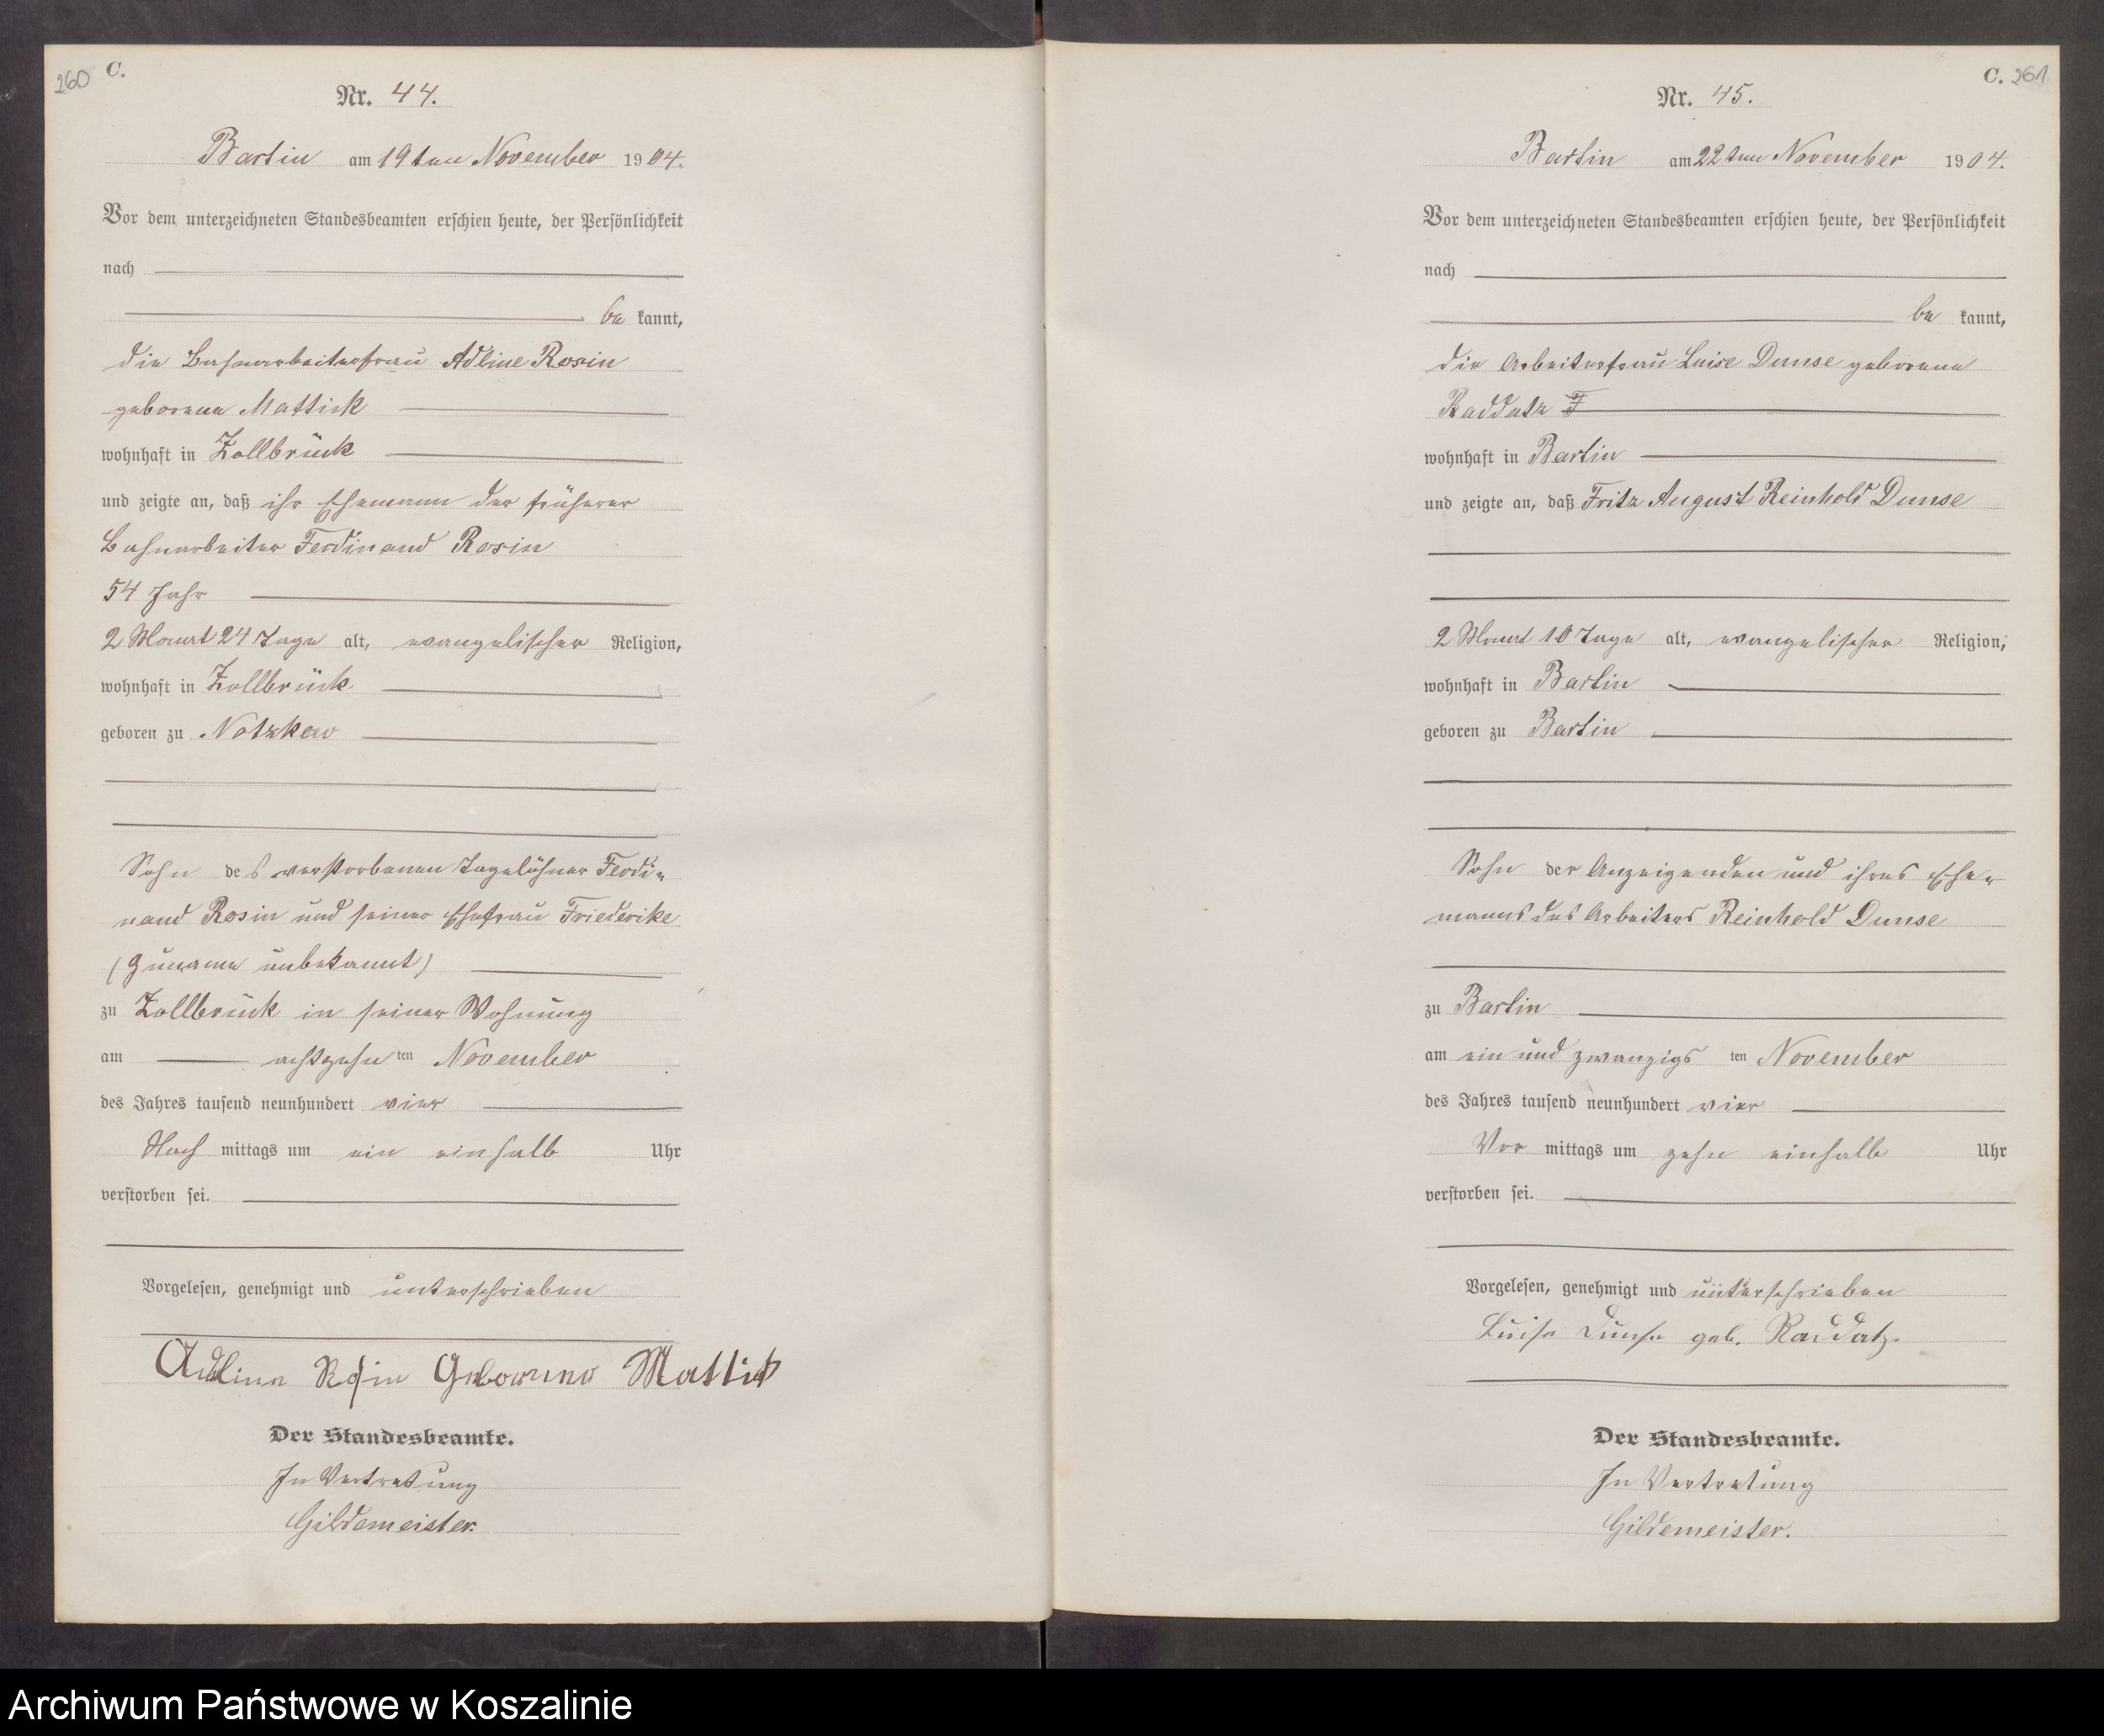 260 C.
Nr. 44.
Bartin am 19ten November 1904.
Vor dem unterzeichneten Standesbeamten erschien heute, der Persönlichkeit
nach
be kannt,
die Bahnarbeiterfrau Adline Rosin
geborene Mattick
wohnhaft in Zollbrück
und zeigte an, daß ihr Ehemann der früherer
Bahnarbeiter Ferdinand Rosin
54 Jahr
2 Monat 24 Tage alt, evangelischer Religion,
wohnhaft in Zollbrück
geboren zu Notzkow
Sohn des verstorbenen Tagelöhner Ferdi-
nand Rosin und seiner Ehefrau Friederike
(Zuname unbekannt)
zu Zollbrück in seiner Wohnung
am achtzehn ten November
des Jahres tausend neunhundert vier
Nach mittags um ein einhalb Uhr
verstorben sei.
Vorgelesen, genehmigt und unterschrieben
Adline Rosin Geborene Mattick
Der Standesbeamte.
In Vertretung
Gildemeister.
C. 261
Nr. 45.
Bartin am 22ten November 1904.
Vor dem unterzeichneten Standesbeamten erschien heute, der Persönlichkeit
nach
be kannt,
die Arbeiterfrau Luise Dunse geborene
Raddatz
wohnhaft in Bartin
und zeigte an, daß Fritz August Reinhold Dunse
2 Monat 10 Tage alt, evangelischer Religion,
wohnhaft in Bartin
geboren zu Bartin
Sohn der Anzeigenden und ihres Ehe-
manns des Arbeiters Reinhold Dunse
zu Bartin
am ein und zwanzigs ten November
des Jahres tausend neunhundert vier
Vor mittags um zehn einhalb Uhr
verstorben sei.
Vorgelesen, genehmigt und unterschrieben
Luise Dunse geb. Raddatz.
Der Standesbeamte.
In Vertretung
Gildemeister.
Archiwum Państwowe w Koszalinie